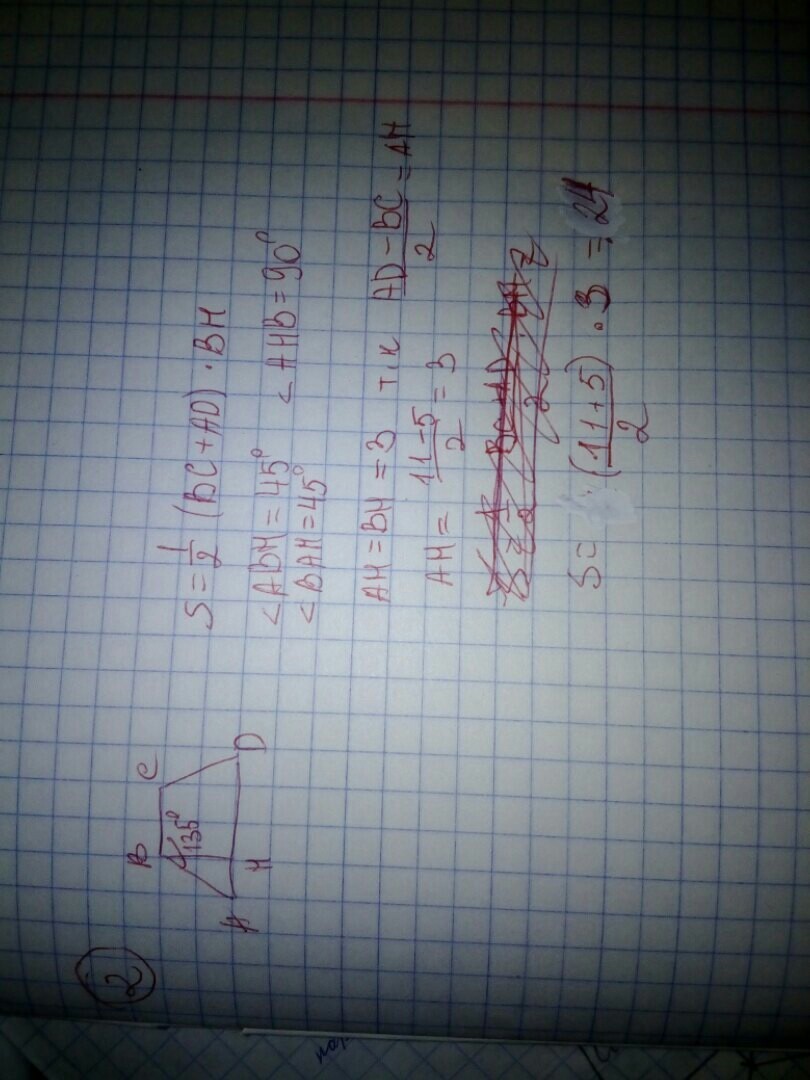 2
B C
135°
A H D
S = 1/2 (BC+AD) · BH
<ABH = 45° <AHB = 90°
<BAH = 45°
AH = BH = 3 т.к (AD-BC)/2 = AH
AH = (11-5)/2 = 3
S = (11+5)/2 · 3 = 24